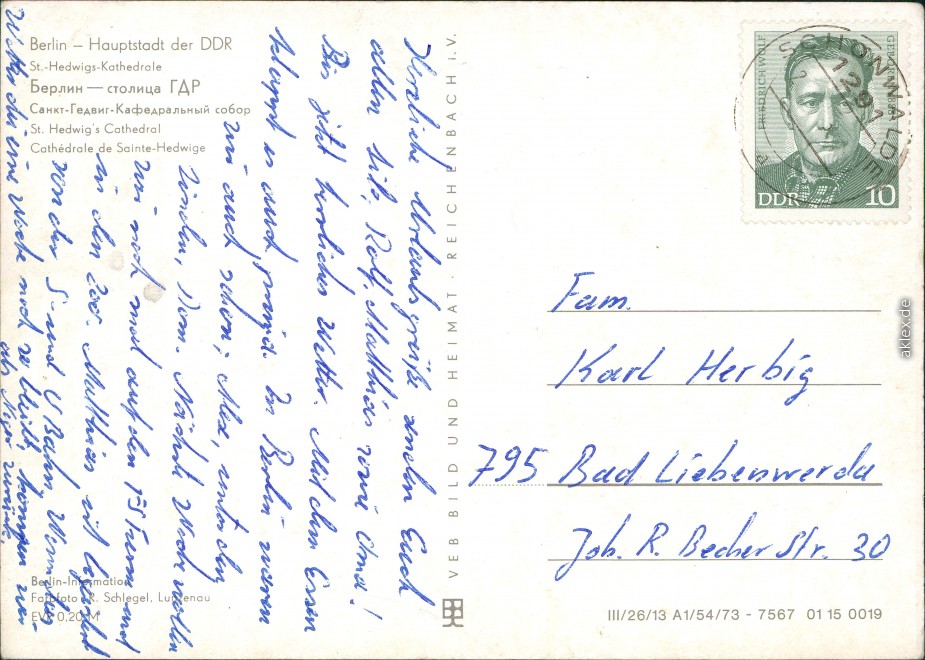 Berlin – Hauptstadt der DDR
St.-Hedwigs-Kathedrale
Берлин — столица ГДР
Санкт-Гедвиг-Кафедральный собор
St. Hedwig's Cathedral
Cathédrale de Sainte-Hedwige
Herzliche Urlaubsgrüße senden Euch
allen Ute, Rolf, Matthias und Oma!
Bis jetzt herrliches Wetter. Mit dem Essen
klappt es auch prima. In Berlin waren
wir auch schon; Alex, unter den
Linden, Dom. Nächste Woche wollen
wir noch mal auf den FS Turm und
in den Zoo. Matthias ist begeistert
von der S- und U Bahn. Wenn das
Wetter die eine Woche noch so bleibt, kommen wir
als Neger zurück.
Berlin-Information
Farbfoto: R. Schlegel, Lunzenau
EVP 0,20 M
VEB BILD UND HEIMAT · REICHENBACH i.V.
FRIEDRICH WOLF
GEBOREN 1888
DDR 10
SCHÖNWALDE
1291
Fam.
Karl Herbig
795 Bad Liebenwerda
Joh. R. Becher Str. 30
III/26/13 A1/54/73 - 7567 01 15 0019
aklex.de